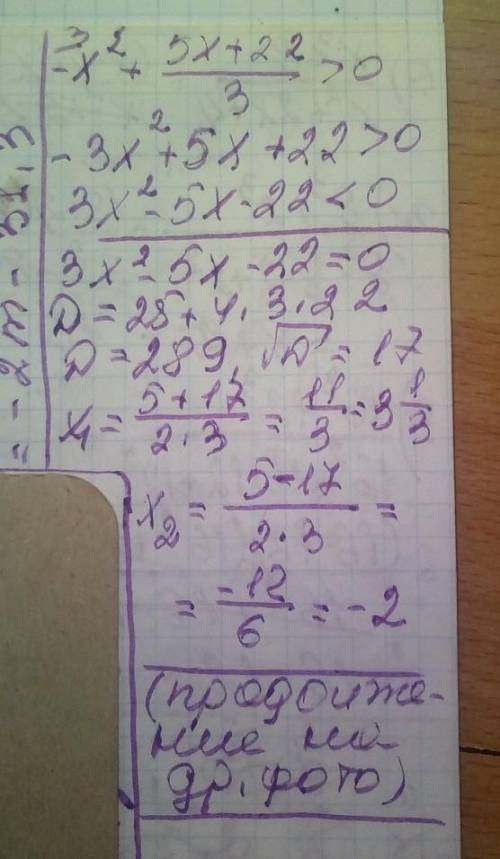 -x² + (5x+22)/3 > 0
3
-3x²+5x+22>0
3x²-5x-22<0
3x²-5x-22=0
D=25+4·3·22
D=289 √D = 17
x₁= (5+17)/(2·3) = 11/3 = 3 1/3
x₂= (5-17)/(2·3) =
= -12/6 = -2
(продолже-
ние на
др. фото)